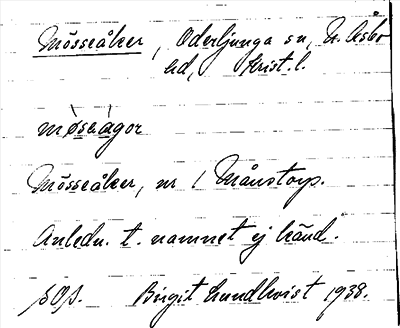 Mösseåker, Oderljunga sn, N. Asbo
hd, Krist. l.
møseågor
Mösseåker, nr 1 Månstorp.
Anledn. t. namnet ej känd.
SOS. Birgit Lundkvist 1938.